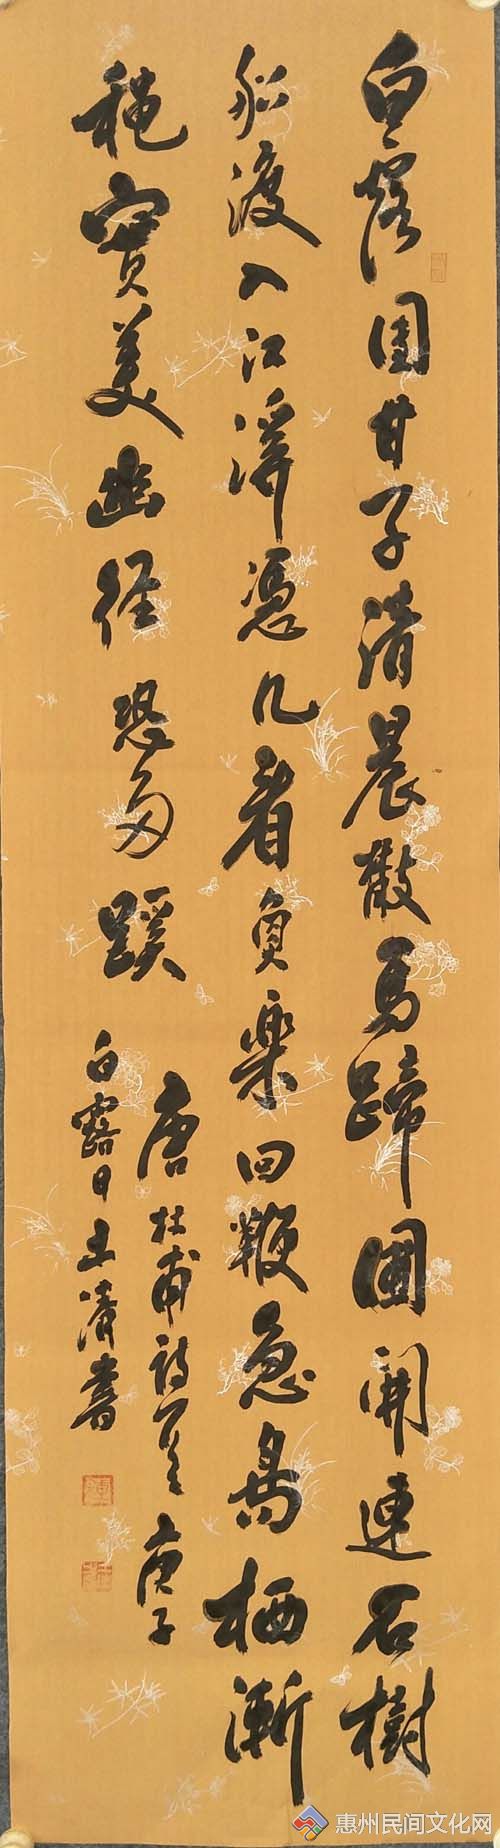 白露團甘子清晨散馬蹄圃開連石樹
船渡入江溪憑几看魚楽回鞭急鳥栖漸
穐實美幽徑恐多蹊
唐杜甫詩一首庚子
白露日王清書
惠州民间文化网